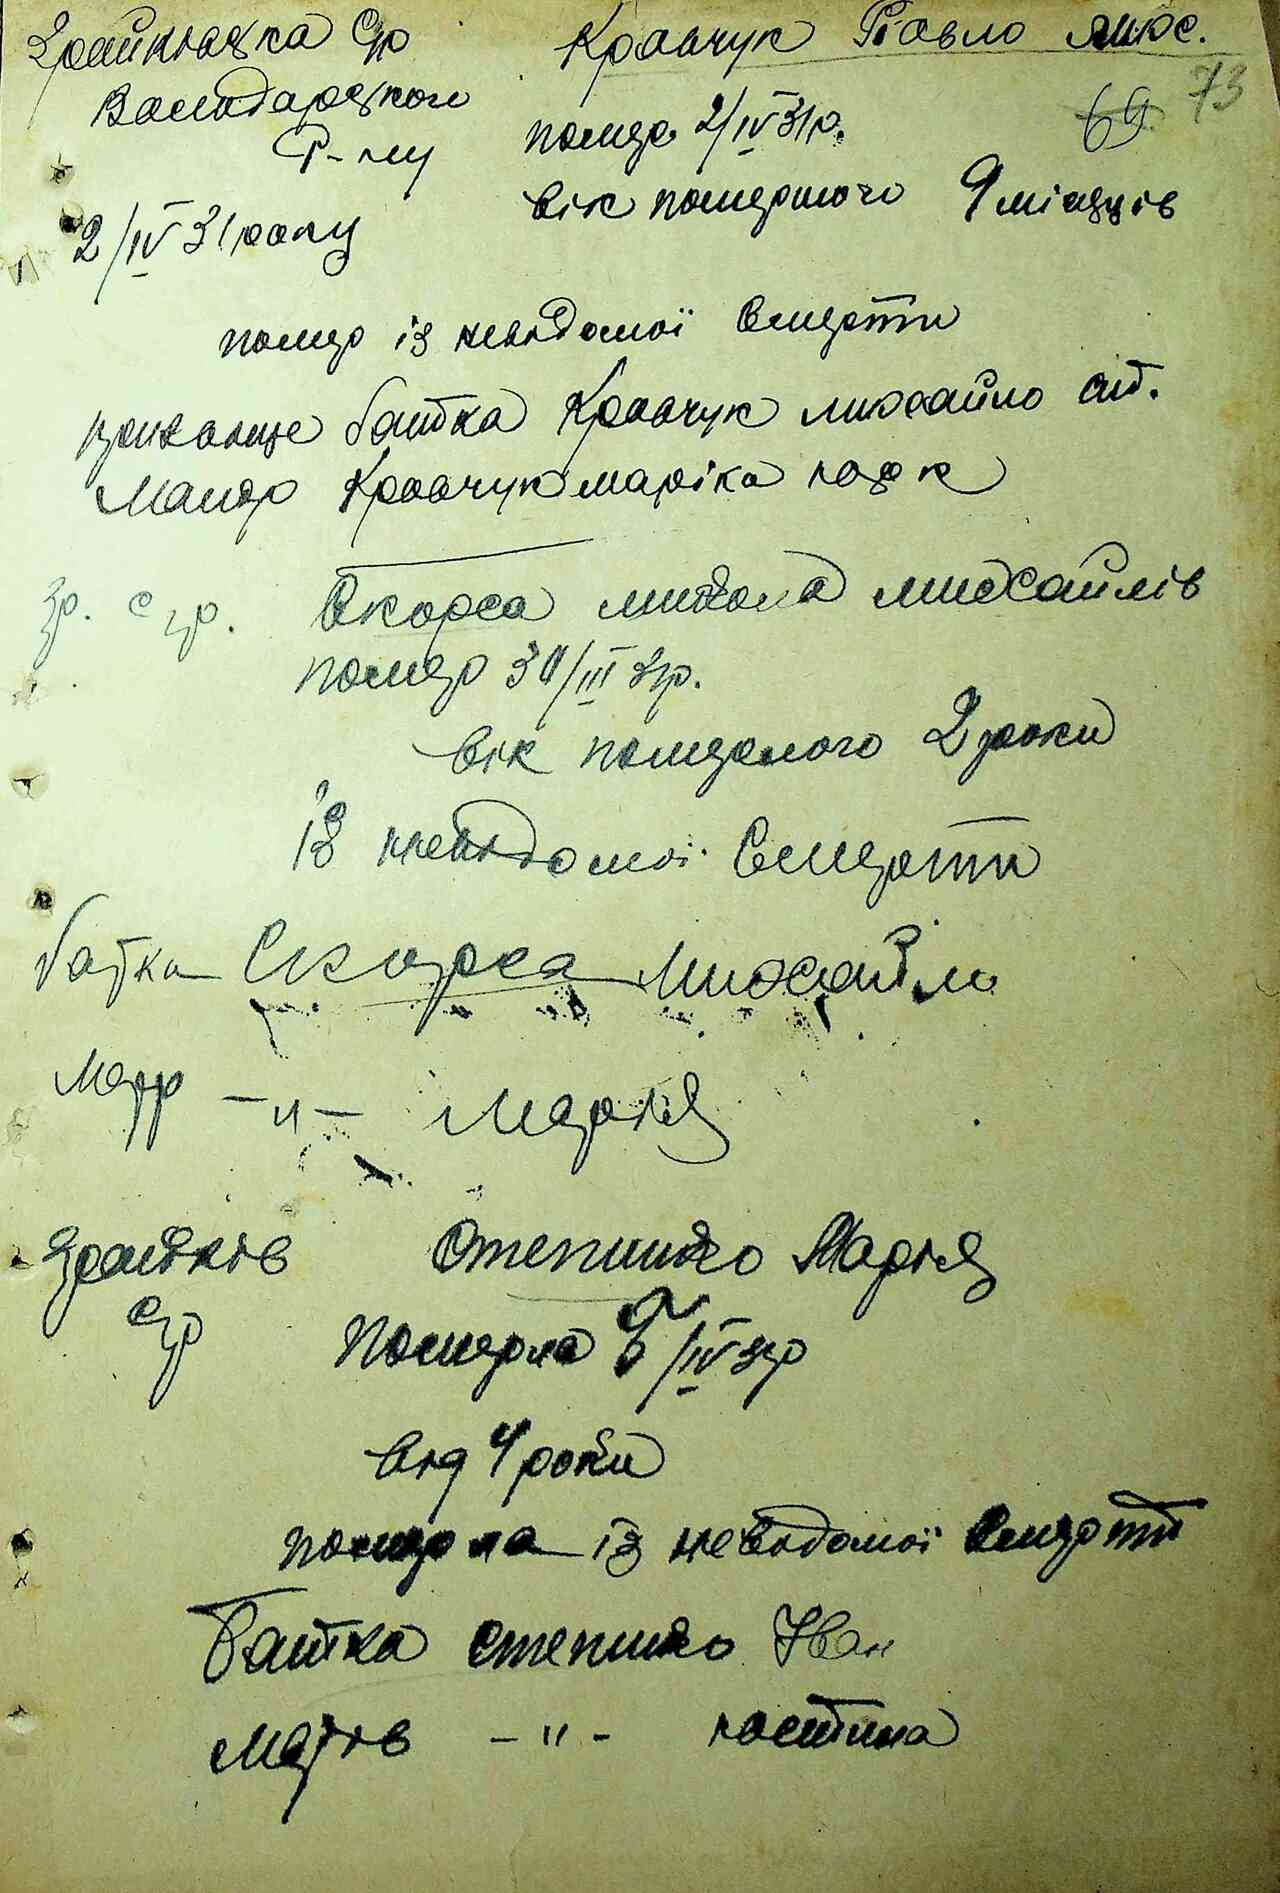 Кравчук Павло Мих.
69 73
Володарського
Р-ну
помер 2/IV 31 р.
вік помершого 9 місяців
2/IV 31 року
помер із невідомої смерти
прізвище батка Кравчук Михайло
Матір Кравчук Маріка
Скорса Микола Михайлів
помер 30/III 31р.
вік померлого 2 роки
із невідомої смерти
батка Скорса Михайло
Матір -"- Марія
Зрайків Степинко Марія
с/р померла 6/IV 31р
від 4 роки
померла із невідомої смерти
Батка Степинко Іван
Матів -"- Настина